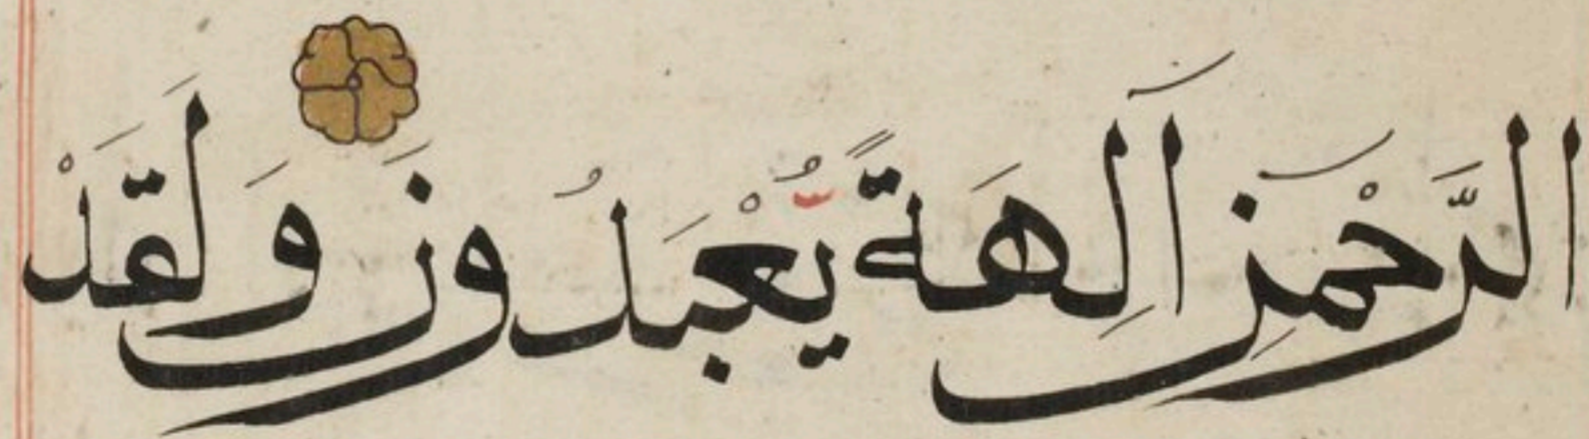 الرَّحْمَنِ آلِهَةً يُّعْبَدُونَ وَلَقَدْ